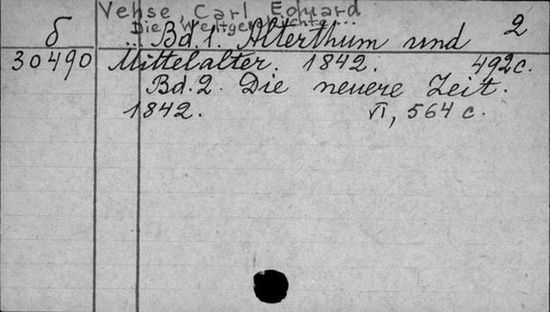 Vehse Carl Eduard
Die Weltgeschichte...
б ... Bd. 1. Alterthum und 2
30490 Mittelalter. 1842. 492 c.
Bd. 2. Die neuere Zeit.
1842. VI, 564 c.